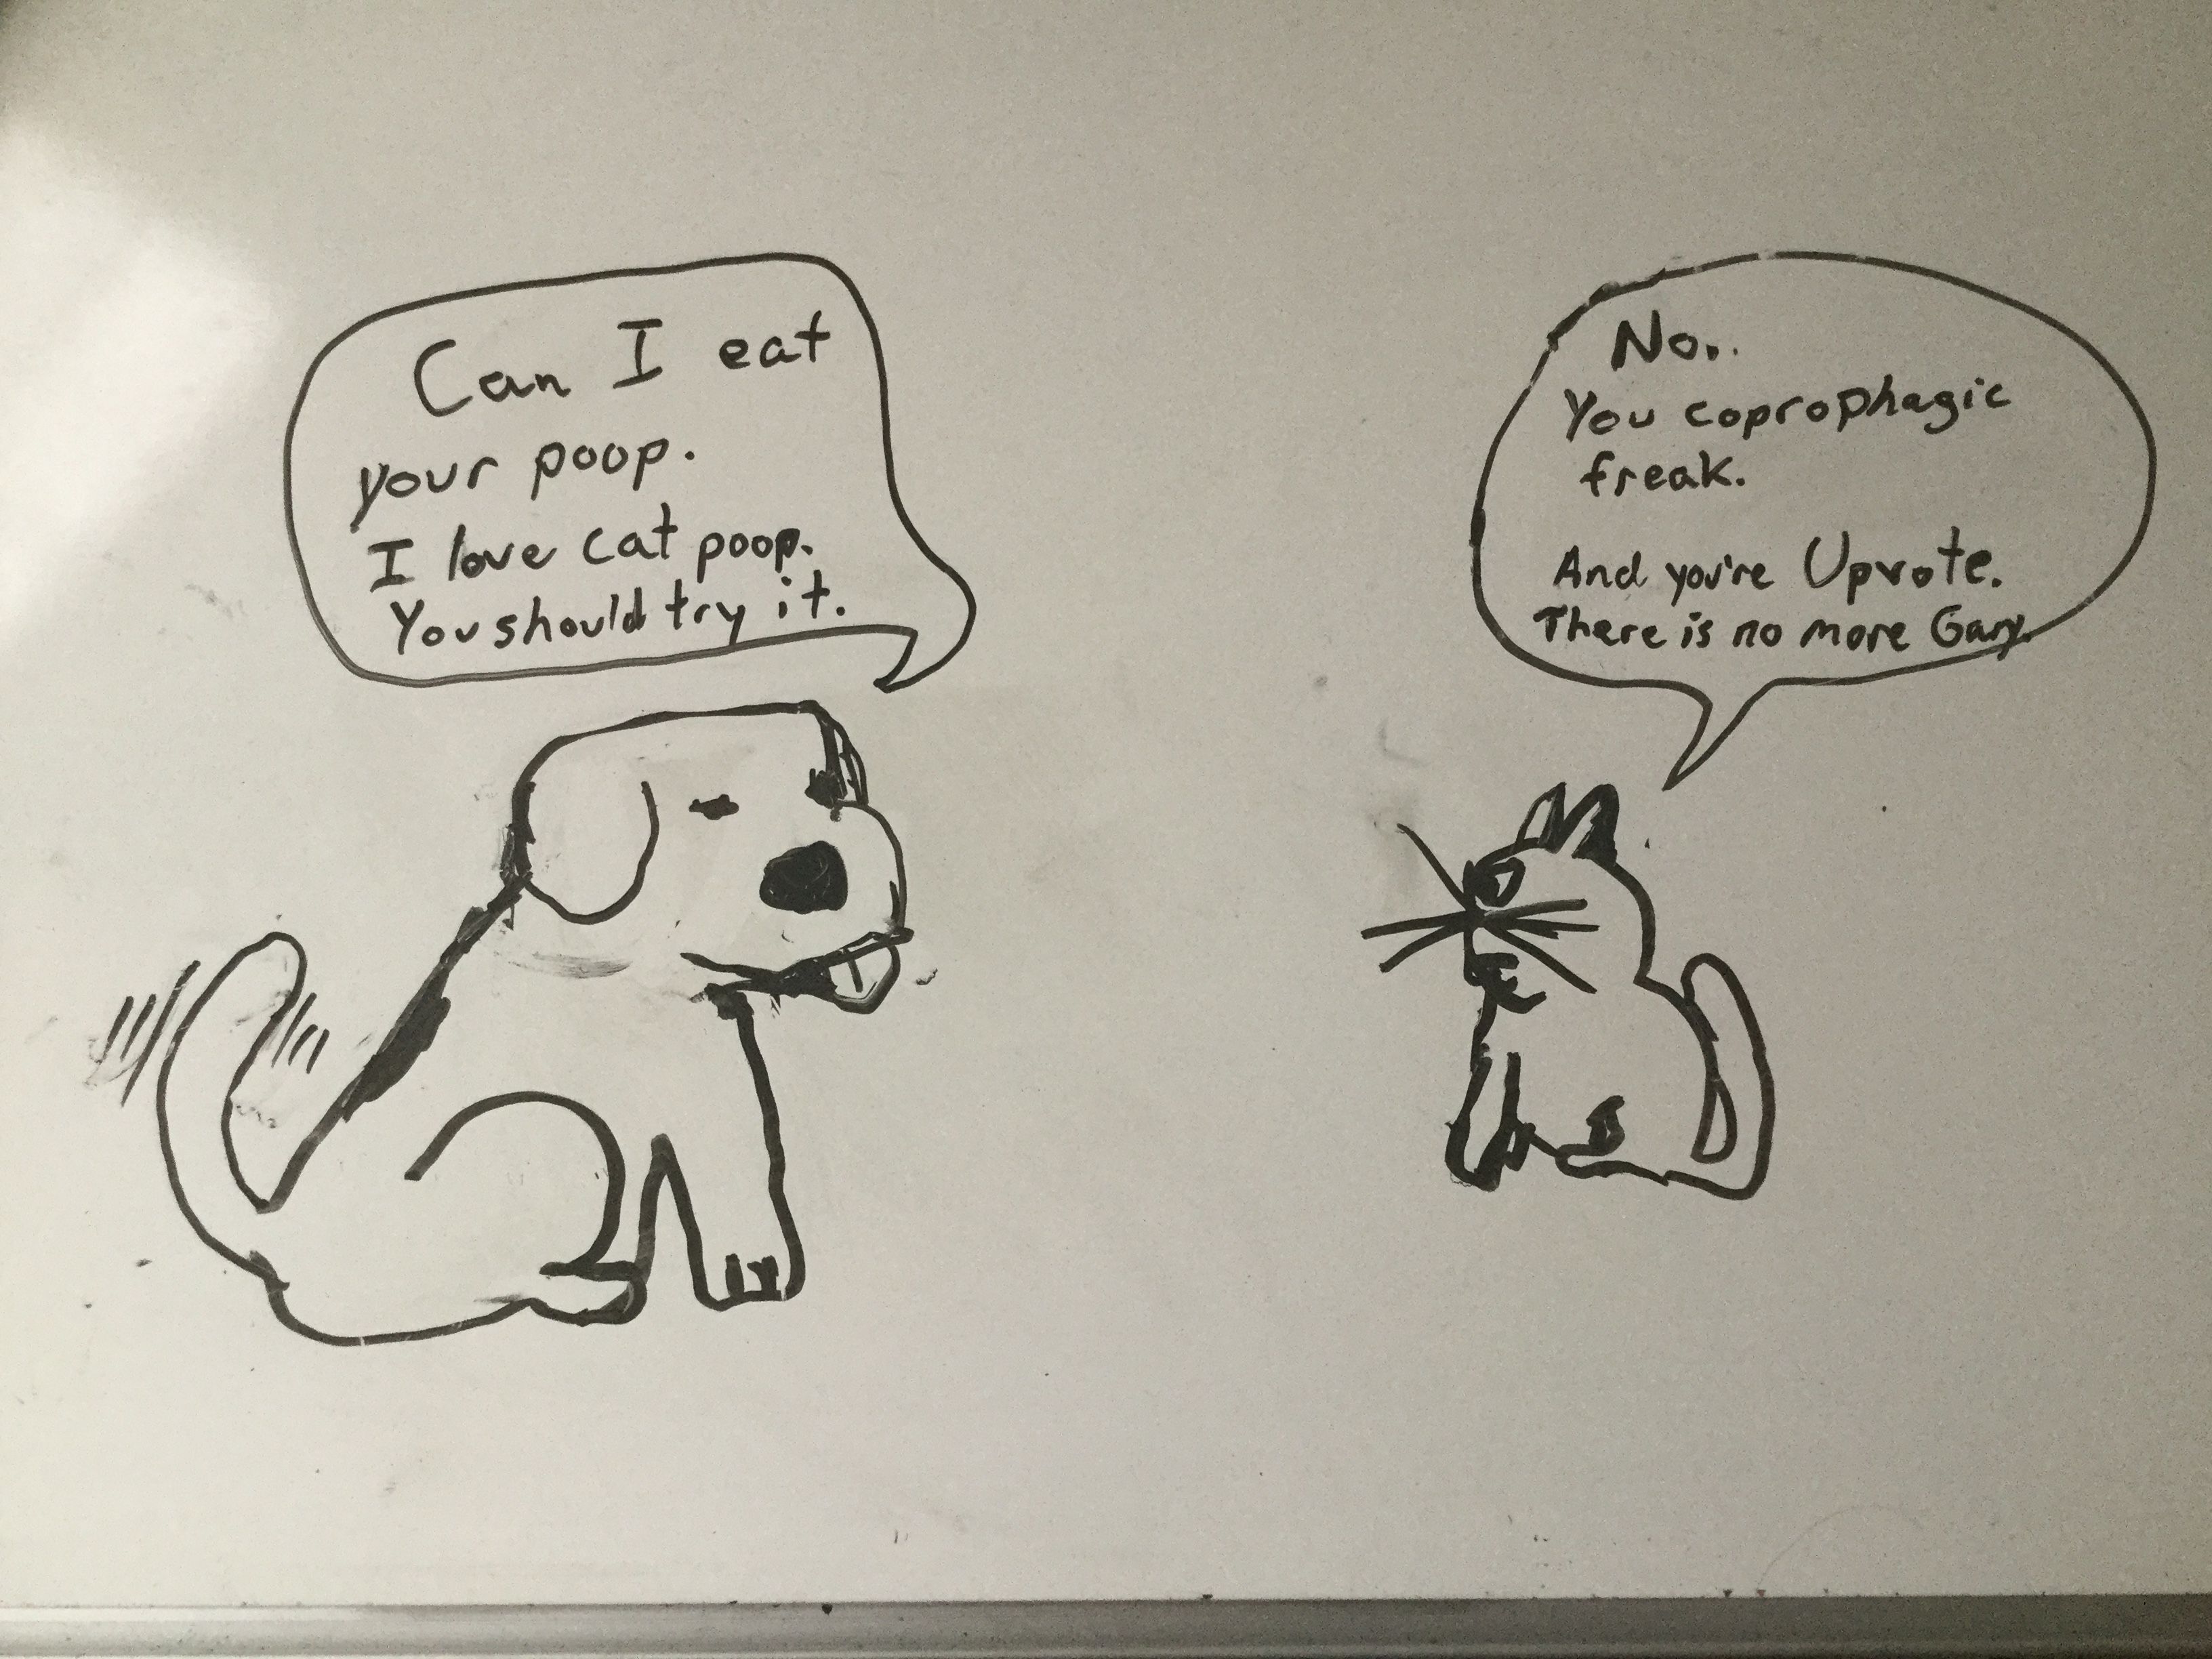 Can I eat
your poop.
I love cat poop.
You should try it.
No..
You coprophagic
freak.
And you're Upvote.
There is no more Gary.